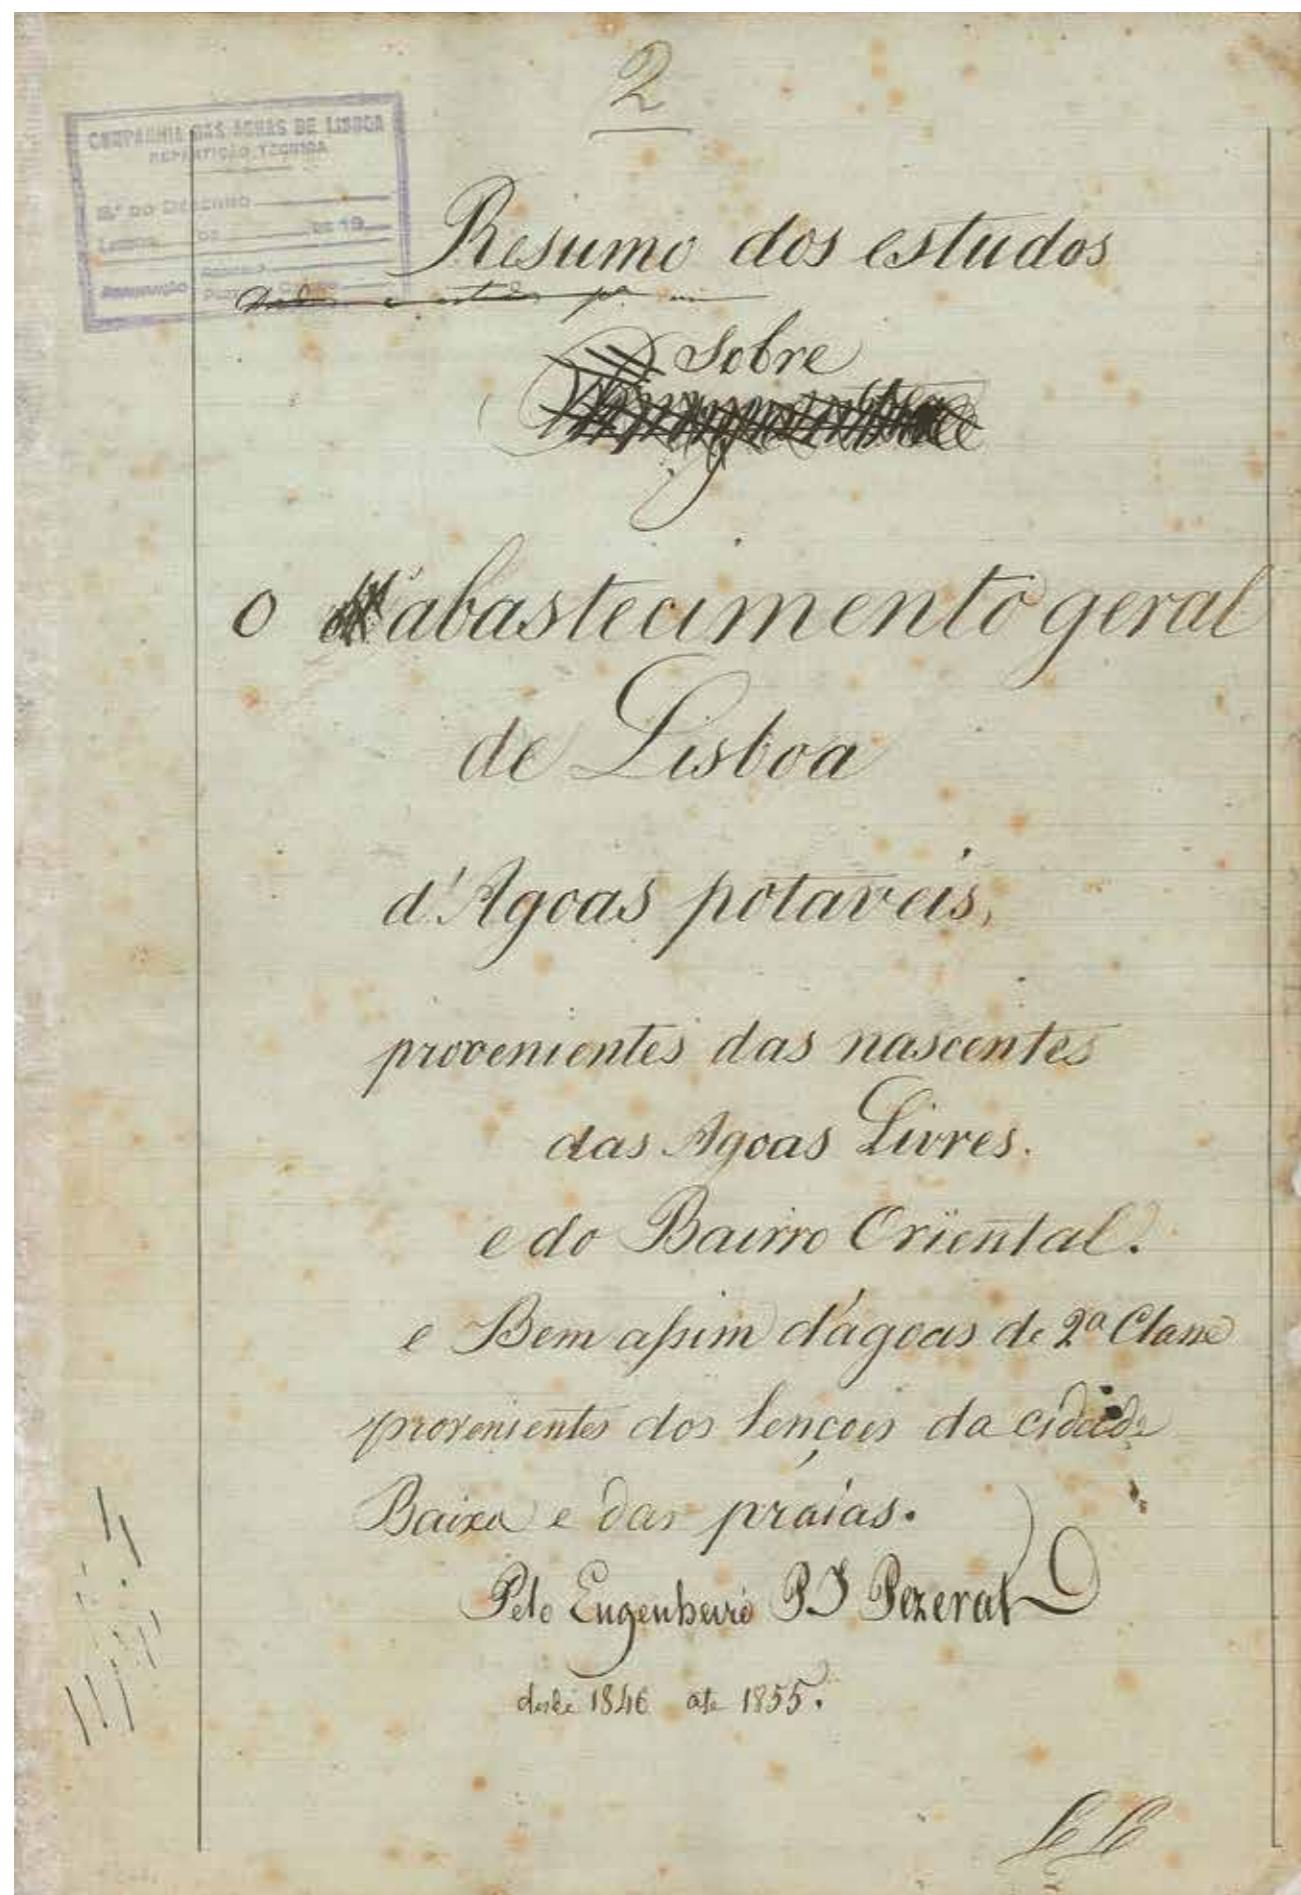 2
COMPANHIA DAS AGUAS DE LISBOA
REPARTIÇÃO TECNICA
N.º DO DESENHO
LISBOA DE DE 19
Resumo dos estudos
Sobre
o abastecimento geral
de Lisboa
d'Agoas potaveis,
provenientes das nascentes
das Agoas Livres.
e do Bairro Oriental.
e Bem assim d'agoas de 2ª Classe
provenientes dos lençois da cidade
Baixa e das praias.
Pelo Engenheiro P J Pezerat
desde 1846 ate 1855.